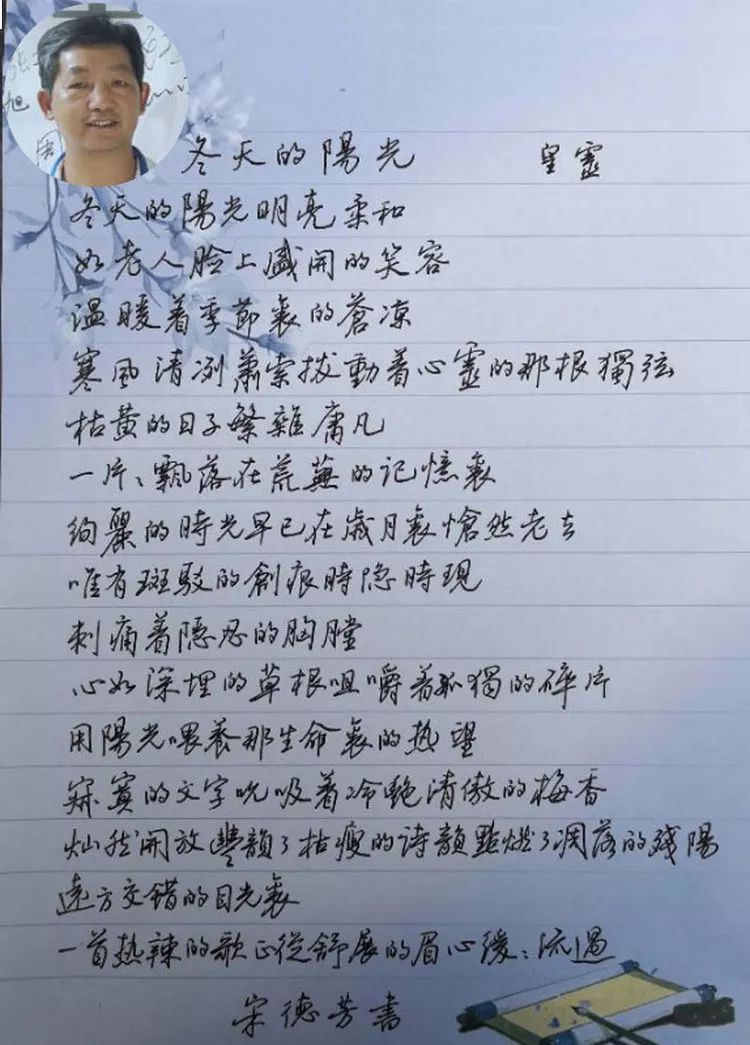 冬天的陽光 皇靈
冬天的陽光明亮柔和
如老人臉上盛開的笑容
温暖着季節裏的蒼凉
寒風清冽蕭索拨動着心靈的那根獨弦
枯黄的日子繁雜庸凡
一片々飄落在荒蕪的记憶裏
绚麗的時光早已在歲月裏愴然老去
唯有斑駁的創痕時隐時現
刺痛着隱忍的胸膛
心如深埋的草根咀嚼着孤獨的碎片
用陽光喂养那生命裏的热望
寂寞的文字吮吸着冷艳清傲的梅香
灿然開放豐韻了枯瘦的诗韻點燃了凋落的残陽
遠方交错的目光裏
一首热辣的歌正從舒展的眉心緩々流過
宋德芳書